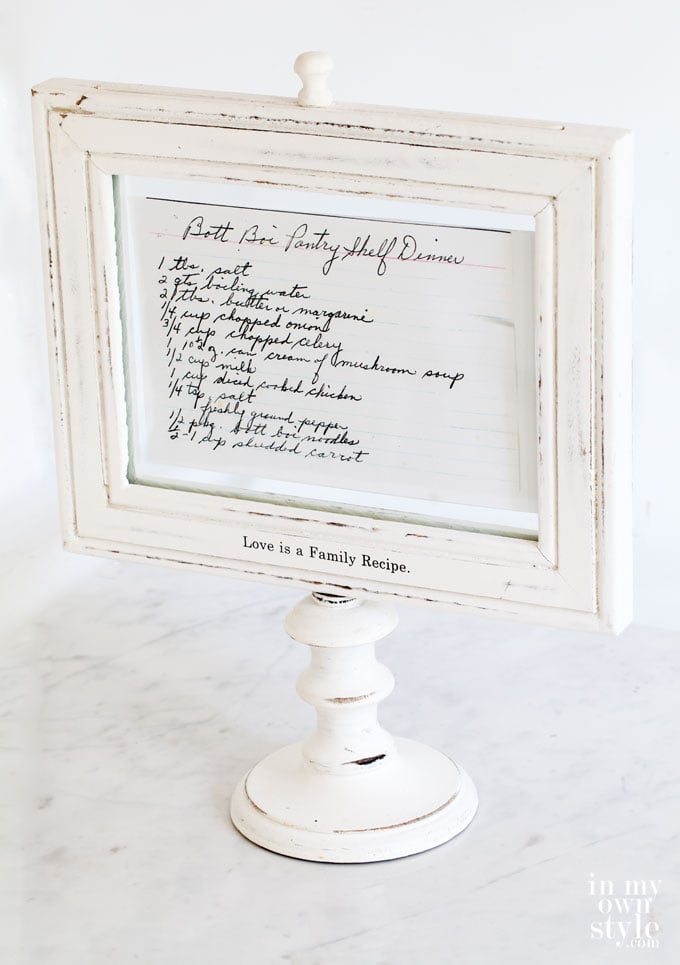 Bott Boi Pantry Shelf Dinner
1 tbs. salt
2 qts boiling water
2 tbs. butter or margarine
1/4 cup chopped onion
3/4 cup chopped celery
1 10 1/2 oz. can cream of mushroom soup
1/2 cup milk
1 cup diced cooked chicken
1/4 tsp. salt
freshly ground pepper
1/2 pkg. bott boi noodles
1/2-1 cup shredded carrot
Love is a Family Recipe.
in my
own
style
.com